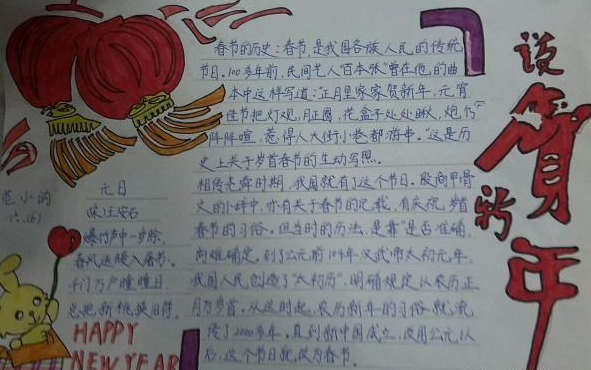 春节的历史:春节,是我国各族人民的传统
节日。100多年前,民间艺人"百本张"曾在他的曲
本中这样写道:"正月里家家贺新年,元宵
佳节把灯观,月正圆,花盒子处处瞅,炮竹
阵阵喧,惹得人大街小巷都游串。"这是历
史上关于岁首春节的生动写照。
相传尧舜时期,我国就有了这个节日。殷商甲骨
文的小碎中,亦有关于春节的记载,有庆祝岁首
春节的习俗。但当时的历法,是靠 是否准确,
尚难确定。到了公元前104年汉武帝太初元年,
我国人民创造了"太初历",明确规定以农历正
月为岁首。从这时起,农历新年的习俗就流
传了2000多年。直到新中国成立,改用公元以
后,这个节日就改为春节。
说贺新年
范小
六.(6)
元日
宋 王安石
爆竹声中一岁除,
春风送暖入屠苏。
千门万户曈曈日,
总把新桃换旧符。
HAPPY
NEW YEAR